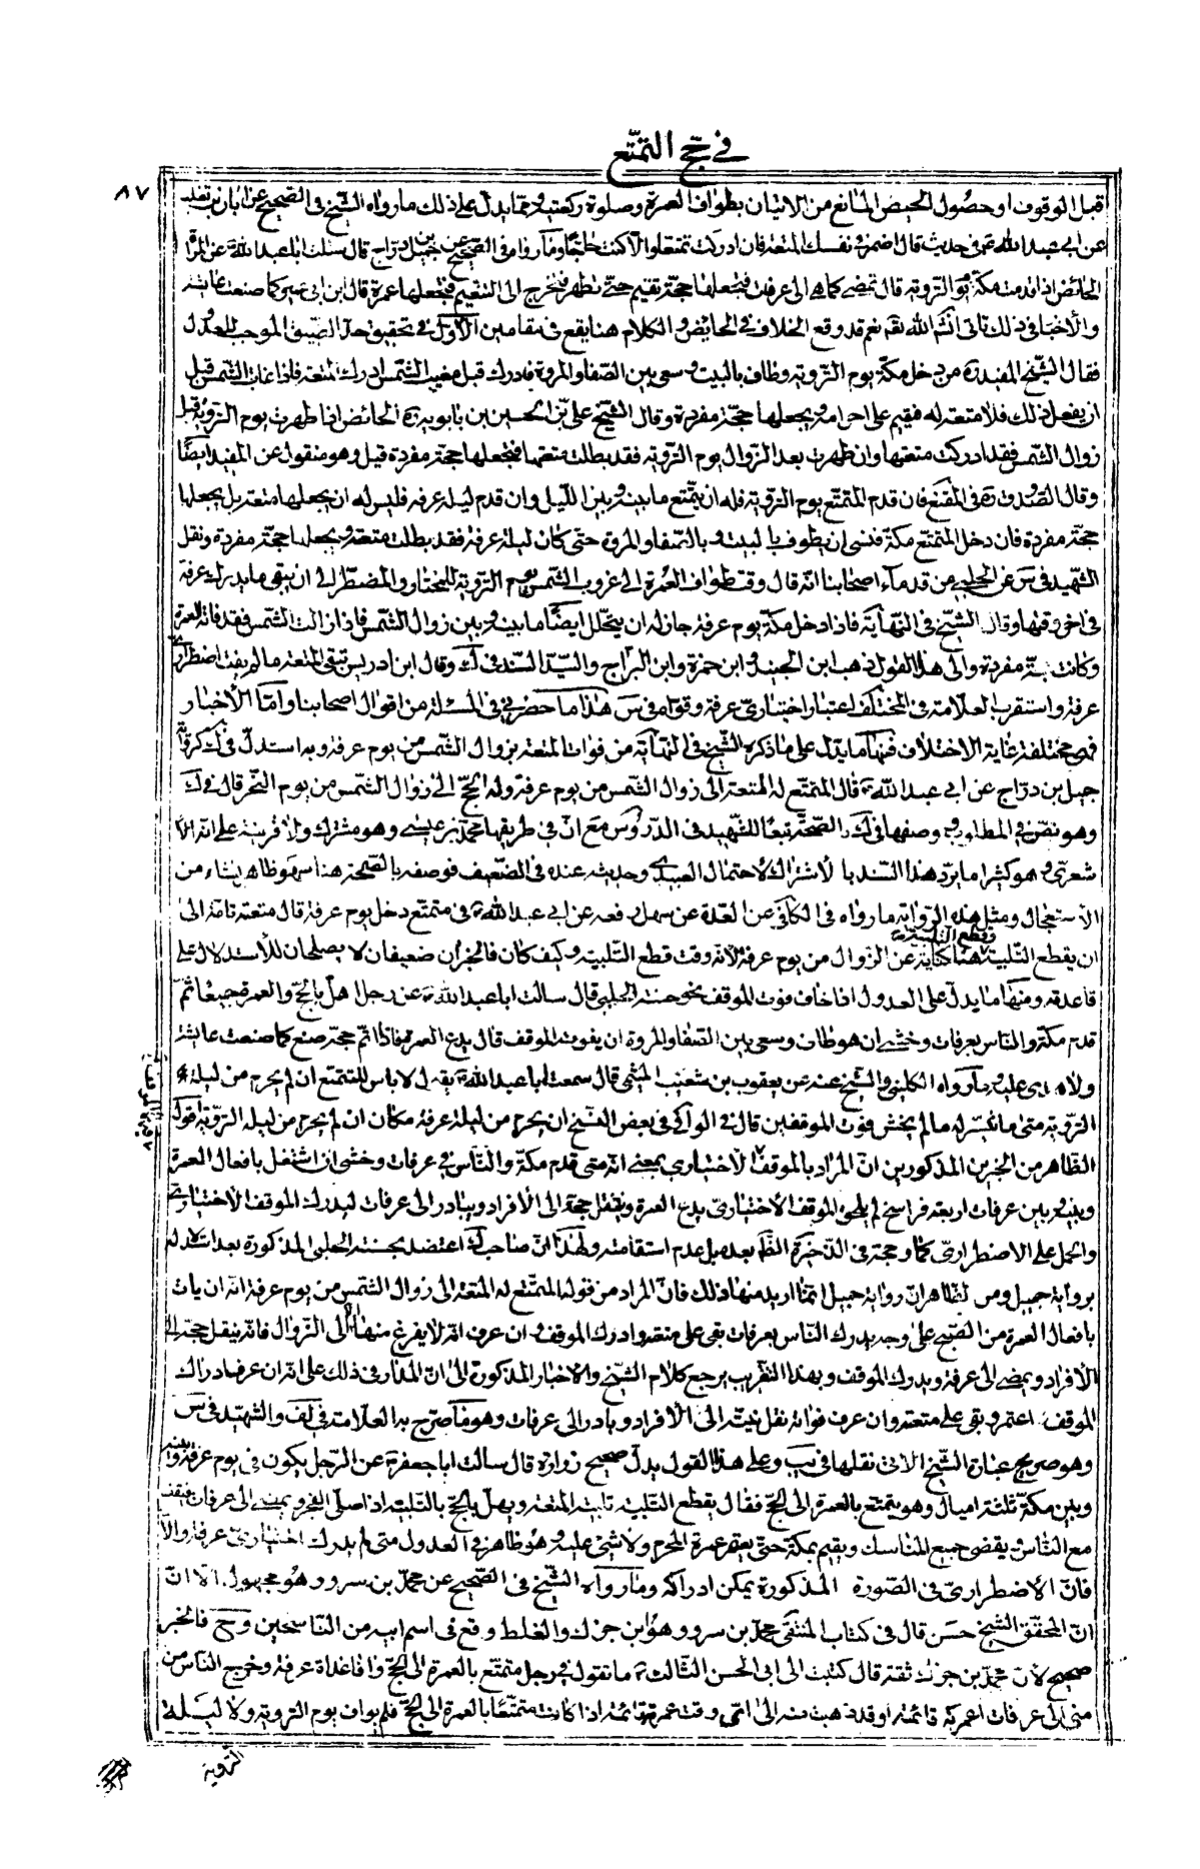 في حج التمتّع
٨٧
قبل الوقوف او حصُول الحيض المانع من الاتيان بطواف العمرة وصلوة ركعتيه وممّا يدلّ على ذلك مارواه الشّيخ فى الصّحيح عن ابان بن تغلب
عن ابى عبد الله ع فى حديث قال اضمر فى نفسك المتعة فان ادركت متمتعا والّا كنت حاجّا وما رواه فى الصّحيح عن جميل بن درّاج قال سئلت ابا عبد الله ع عن المرأة
الحائض اذا قدمت مكّة يوم التّروية قال تمضى كما هى الى عرفات فتجعلها حجّة ثم تقيم حتّى تطهر فتخرج الى التنعيم فتجعلها عمرة قال ابن ابى عمير كما صنعت عايشه
والأخبار فى ذلك تاتى انشاء الله نعم قد وقع الخلاف فى الحايض والكلام هنا يقع فى مقامين الأوّل فى تحقيق حدّ الضّيق الموجب للعدُول
فقال الشّيخ المفيد ره من دخل مكّة يوم التّروية وطاف بالبيت وسعى بين الصّفا والمروة فادرك قبل مغيب الشّمس ادرك المتعة فاذا غابت الشّمس قبل
ان يفعل ذلك فلا متعة له فيقيم على احرامه ويجعلها حجّة مفردة وقال الشّيخ على بن الحسين بن بابويه ره الحائض اذا طهرت يوم التّروية قبل
زوال الشّمس فقد ادركت متعتها وان طهرت بعد الزّوال يوم التّروية فقد بطلت متعتها فتجعلها حجّة مفردة قيل وهو منقول عن المفيد ايضًا
وقال الصّدوق ره فى المقنع فان قدم المتمتّع يوم التّروية فله ان يتمتّع ما بينه وبين اللّيل وان قدم ليلة عرفة فليس له ان يجعلها متعة بل يجعلها
حجّة مفردة فان دخل المتمتّع مكّة فنسى ان يطوف بالبيت وبالصّفا والمروة حتّى كان ليلة عرفة فقد بطلت متعته ويجعلها حجّة مفردة ونقل
الشّهيد فى س عن الحلبى عن قدماء اصحابنا انّه قال وقت طواف العُمرة الى غروب الشّمس يوم التّروية للمختار والمضطرّ الى ان يبقى ما يدرك عرفة
فى اخر وقتها وقال الشّيخ فى النّهاية فاذا دخل مكّة يوم عرفة جاز له ان يتحلّل ايضًا ما بينه وبين زوال الشّمس فاذا زالت الشّمس فقد فاتته العمرة
وكانت حجّته مفردة والى هذا القول ذهب ابن الجنيد وابن حمزة وابن البرّاج والسّيّد السّند فى ك وقال ابن ادريس تبقى المتعة ما لم يفت اضطرارى
عرفة واستقرب العلّامة فى المختلف اعتبار اختيارىّ عرفة وقوّاه فى س هذا ما حضرنى فى المسئلة من اقوال اصحابنا وامّا الأخبار
فهى مختلفة غاية الاختلاف فمنها ما يدلّ على ما ذكره الشّيخ فى النّهاية من فوات المتعة بزوال الشّمس من يوم عرفة وبه استدلّ فى ك كرواية
جميل بن درّاج عن ابى عبد الله ع قال المتمتّع له المتعة الى زوال الشّمس من يوم عرفة وله الحجّ الى زوال الشّمس من يوم النّحر قال فى ك
وهو نصّ فى المطلوب ووصفها فى ك بالصّحّة تبعًا للشّهيد فى الدّروس مع انّ فى طريقها محمّد بن عيسى وهو مشترك ولا قرينة على انّه الأ
شعرى وهو كثيرا ما يرد هذا السّند بالاشتراك لأحتمال العبيدى وحديثه عنده فى الضّعيف فوصفه بالصّحة هنا سهو ظاهر نشاء من
الأستعجال ومثل هذه الرّواية ما رواه فى الكافى عن العدّة عن سهل رفعه عن ابى عبد الله ع فى متمتع دخل يوم عرفة قال متعته تامّة الى
ان يقطع التّلبية وقطع التلبية هنا كناية عن الزّوال من يوم عرفة لأنّه وقت قطع التّلبية وكيف كان فالخبران ضعيفان لا يصلحان للأستدلال على
قاعدته ومنها ما يدلّ على العدول اذا خاف فوت الموقف نحو حسنة الحلبى قال سالت ابا عبد الله ع عن رجل اهلّ بالحجّ والعمرة جميعًا ثمّ
قدم مكّة والنّاس بعرفات وخشى ان هو طاف وسعى بين الصّفا والمروة ان يفوته الموقف قال يدع العمرة فاذا اتمّ حجّه صنع كما صنعت عايشة
ولا هدى عليه وما رواه الكلينى والشّيخ عنه عن يعقوب بن شعيب الميثمى قال سمعت ابا عبد الله ع يقول لا باس للمتمتّع ان لم يحرم من ليلة
التّروية متى ما تيسّر له ما لم يخش فوت الموقفين قال فى الوافى فى بعض النّسخ ان يحرم من ليلة عرفة مكان ان لم يحرم من ليلة التّروية اقول
الظّاهر من الخبرين المذكورين انّ المراد بالموقف الاختيارى بمعنى انّه متى قدم مكّة والنّاس فى عرفات وخشى ان اشتغل بافعال العمرة
وبينه وبين عرفات اربعة فراسخ لم يلحق الموقف الأختيارىّ يدع العمرة وينقل حجّه الى الأفراد ويبادر الى عرفات ليدرك الموقف الأختيارىّ
والحمل على الاضطرارىّ كما وجّهه فى الذّخيرة الظّ بعده بل عدم استقامته ولهذا انّ صاحب ك اعتضد بحسنة الحلبى المذكورة بعد استدلاله
برواية جميل ومن الظاهر انّ رواية جميل انّما اريد منها ذلك فانّ المراد من قوله المتمتّع له المتعة الى زوال الشّمس من يوم عرفة انّه ان بات
بافعال العمرة من الصّبح على وجه يدرك النّاس بعرفات بقى على متعته وادرك الموقف وان عرف انّه لا يفرغ منها الى الزّوال فانّه ينقل حجّه الى
الأفراد ويمضى الى عرفة ويدرك الموقف وبهذا التّقريب يرجع كلام الشّيخ والاخبار المذكورة الى انّ المدار فى ذلك على انّه ان عرف ادراك
الموقف اعتمر وبقى على متعته وان عرف فواته نقل نيّته الى الأفراد وبادر الى عرفات وهو ما صرّح به العلّامة فى لف والشّهيد فى س
وهو صريح عبارة الشّيخ الاتى نقلها فى يب وعلى هذا القول يدلّ صحيح زرارة قال سالت ابا جعفر ع عن الرّجل يكون فى يوم عرفة وبينه
وبين مكّة ثلثة اميال وهو متمتع بالعمرة الى الحجّ فقال يقطع التّلبية تلبية المتعة ويهلّ بالحجّ بالتّلبية اذا صلّى الفجر ويمضى الى عرفات فيقف
مع النّاس ويقضى جميع المناسك ويقيم بمكّة حتّى يعتمر عمرة المحرم ولا شىء عليه وهو ظاهر فى العدول متى لم يدرك اختيارىّ عرفة والّا
فانّ الأضطرارىّ فى الصّورة المذكورة يمكن ادراكه وما رواه الشّيخ فى الصّحيح عن محمّد بن سرو وهو مجهول الّا انّ
انّ المحقّق الشيخ حسن قال فى كتاب المنتقى محمّد بن سرو وهو ابن جزك والغلط وقع فى اسم ابيه من النّاسخين وح فالخبر
صحيح لأنّ محمّد بن جزك ثقة قال كتبت الى ابى الحسن الثّالث ع ما تقول فى رجل متمتّع بالعمرة الى الحجّ وافا غداة عرفة وخرج النّاس من
منى الى عرفات اعمرته قائمة او قد ذهبت منه الى اىّ وقت عمرته قائمة اذا كانت متمتّعًا بالعمرة الى الحجّ فلم يواف يوم التروية ولا ليلة
التّروية